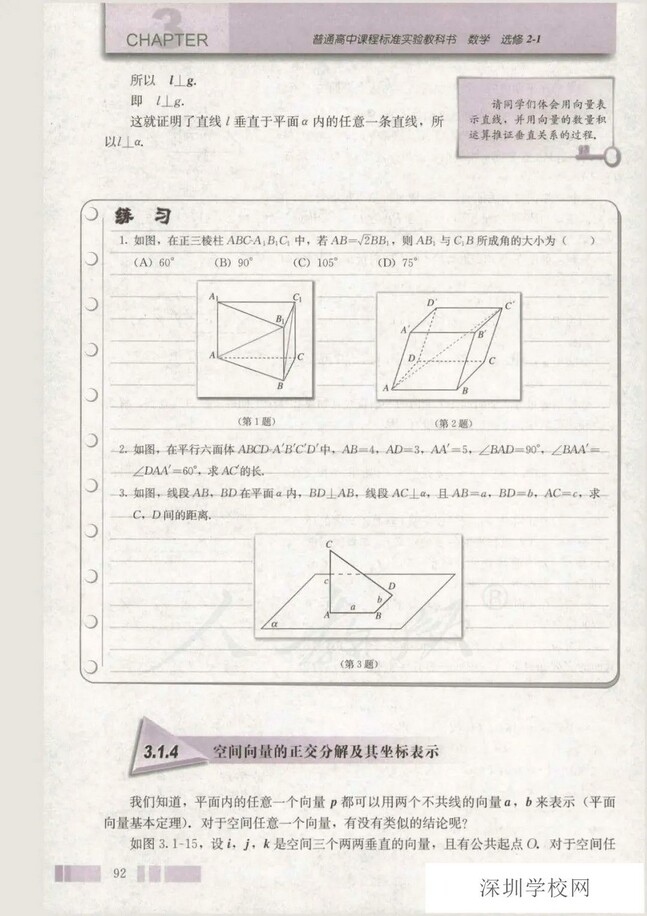 3
CHAPTER
普通高中课程标准实验教科书 数学 选修 2-1
所以 l⊥g.
即 l⊥g.
这就证明了直线 l 垂直于平面 α 内的任意一条直线，所
以l⊥α.
请同学们体会用向量表
示直线，并用向量的数量积
运算推证垂直关系的过程.
练 习
1. 如图，在正三棱柱 ABC-A₁B₁C₁ 中，若 AB=√2BB₁，则 AB₁ 与 C₁B 所成角的大小为（ ）
(A) 60° (B) 90° (C) 105° (D) 75°
A₁ C₁
B₁
A C
B
D′ C′
A′ B′
D C
A B
（第 1 题） （第 2 题）
2. 如图，在平行六面体 ABCD-A′B′C′D′中，AB=4，AD=3，AA′=5，∠BAD=90°，∠BAA′=
∠DAA′=60°，求 AC′的长.
3. 如图，线段 AB，BD 在平面 α 内，BD⊥AB，线段 AC⊥α，且 AB=a，BD=b，AC=c，求
C，D 间的距离.
C
c D
b
a
A B
α
（第 3 题）
®
3.1.4 空间向量的正交分解及其坐标表示
我们知道，平面内的任意一个向量 p 都可以用两个不共线的向量 a，b 来表示（平面
向量基本定理）. 对于空间任意一个向量，有没有类似的结论呢？
如图 3.1-15，设 i，j，k 是空间三个两两垂直的向量，且有公共起点 O. 对于空间任
92
深圳学校网